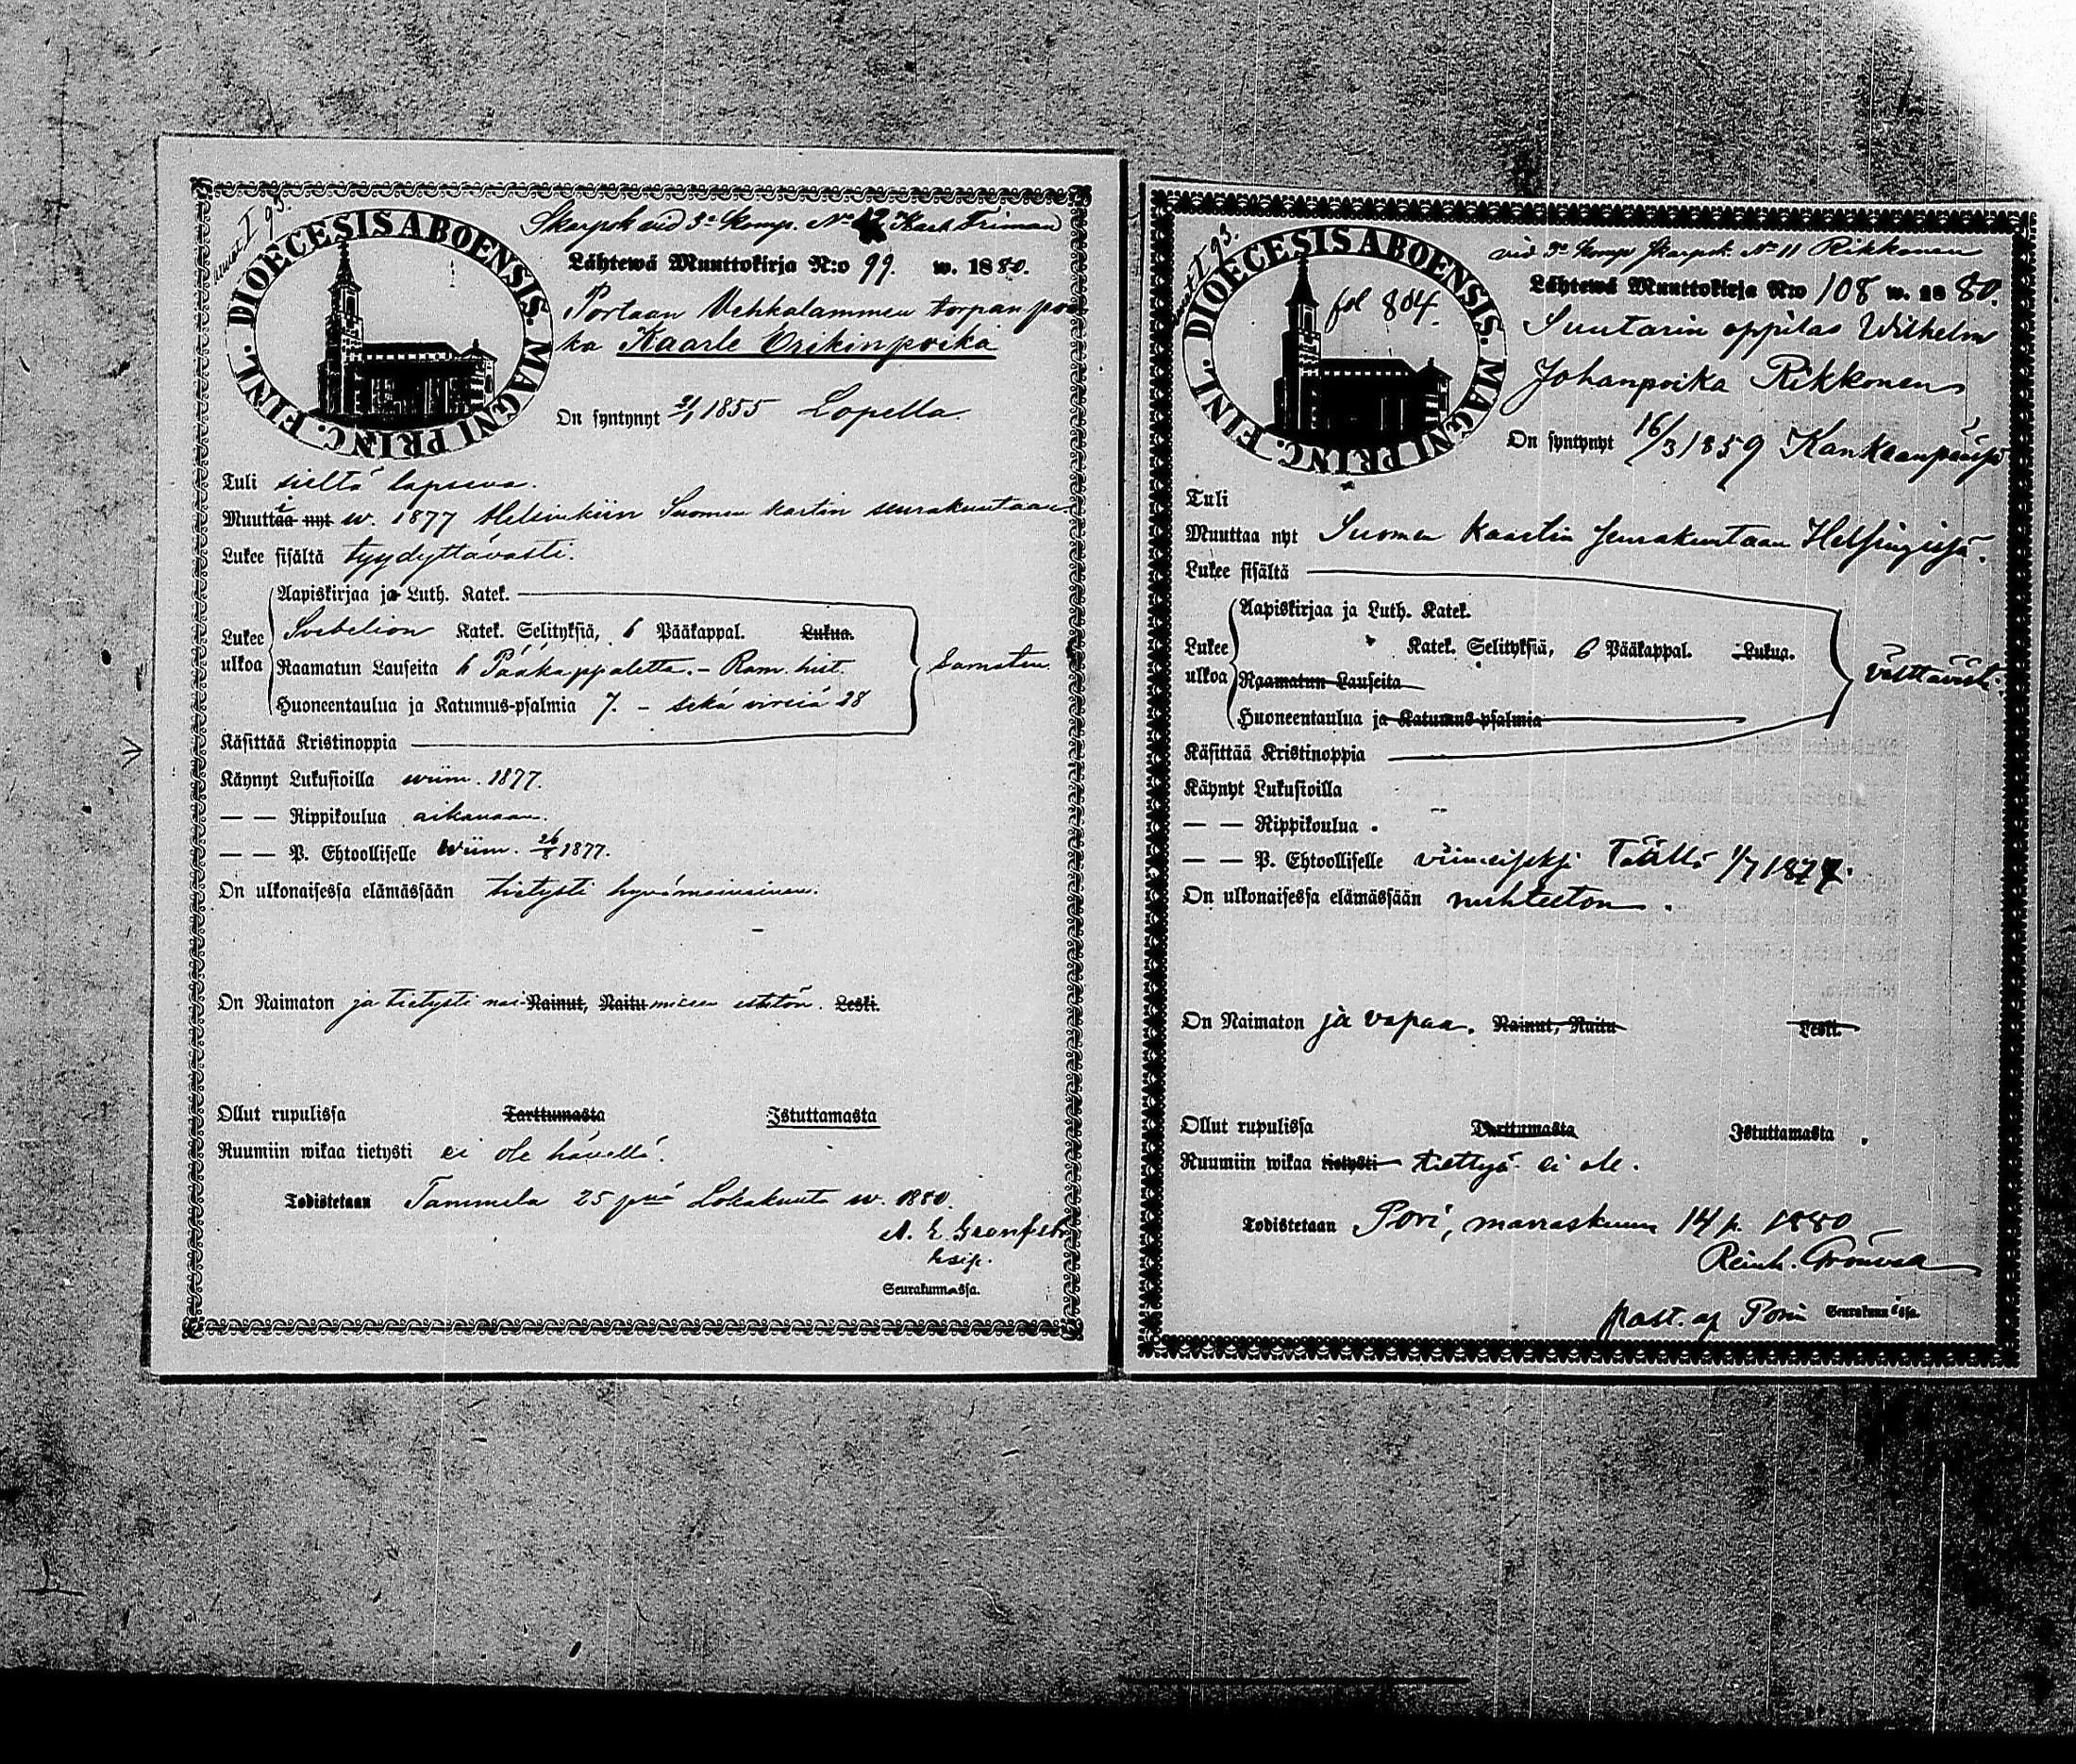 DIOECESIS ABOENSIS. MAGNI PRINC. FINL.
Skarpsk vid 3e Komp. No 12 Karl Friman
Lähtewä Muuttokirja N:o 99. w. 1880.
Portaan Vehkalammen torpan poi
ka Kaarle Erikinpoika
On syntynyt 1855 Lopella
Tuli sieltä lapsena.
Muuttaa nyt w. 1877 Helsinkiin Suomen kaartin seurakuntaan
Lukee sisältä tyydyttävästi.
Aapiskirjaa ja Luth. Katek.
Lukee Svebelion Katek. Selityksiä, 6 Pääkappal. Lukua.
ulkoa Raamatun Lauseita 6 Pääkappaletta. – Ram. hist.
Huoneentaulua ja Katumus-psalmia 7. – sekä virsiä 28
Samaten
Käsittää Kristinoppia
Käynyt Lukusioilla wiim. 1877.
— — Rippikoulua aikanaan.
— — P. Ehtoolliselle wiim. 26/8 1877.
On ulkonaisessa elämässään tietysti hyvämaineinen.
On Naimaton ja tietysti nai Nainut, Naitu misen esteetön. Leski.
Ollut rupulissa Tarttumasta Istuttamasta
Ruumiin wikaa tietysti ei ole hänellä.
Todistetaan Tammela 25 pnä Lokakuuta w. 1880.
A. E. Granfelt
Seurakunnassa.
DIOECESIS ABOENSIS. MAGNI PRINC. FINL.
fol 804.
vid 3e Komp Skarpsk. No 11 Rikkonen
Lähtewä Muuttokirja N:o 108 w. 1880.
Suutarin oppilas Wilhelm
Johanpoika Rikkonen
On syntynyt 16/3 1859 Kankaanpäässä
Tuli
Muuttaa nyt Suomen Kaartin Seurakuntaan Helsingissä.
Lukee sisältä
Aapiskirjaa ja Luth. Katek.
Lukee Katek. Selityksiä, 6 Pääkappal. Lukua.
ulkoa Raamatun Lauseita
Huoneentaulua ja Katumus-psalmia
välttävästi.
Käsittää Kristinoppia
Käynyt Lukusioilla
— — Rippikoulua
— — P. Ehtoolliselle viimeiseksi Täällä 1/7 1877.
On ulkonaisessa elämässään nuhteeton.
On Naimaton ja vapaa. Nainut, Naitu Leski.
Ollut rupulissa Tarttumasta Istuttamasta
Ruumiin wikaa tietysti tiettyä ei ole.
Todistetaan Pori, marraskuun 14 p. 1880
Reinh. Grönvall
past. af Porin Seurakunnissa.